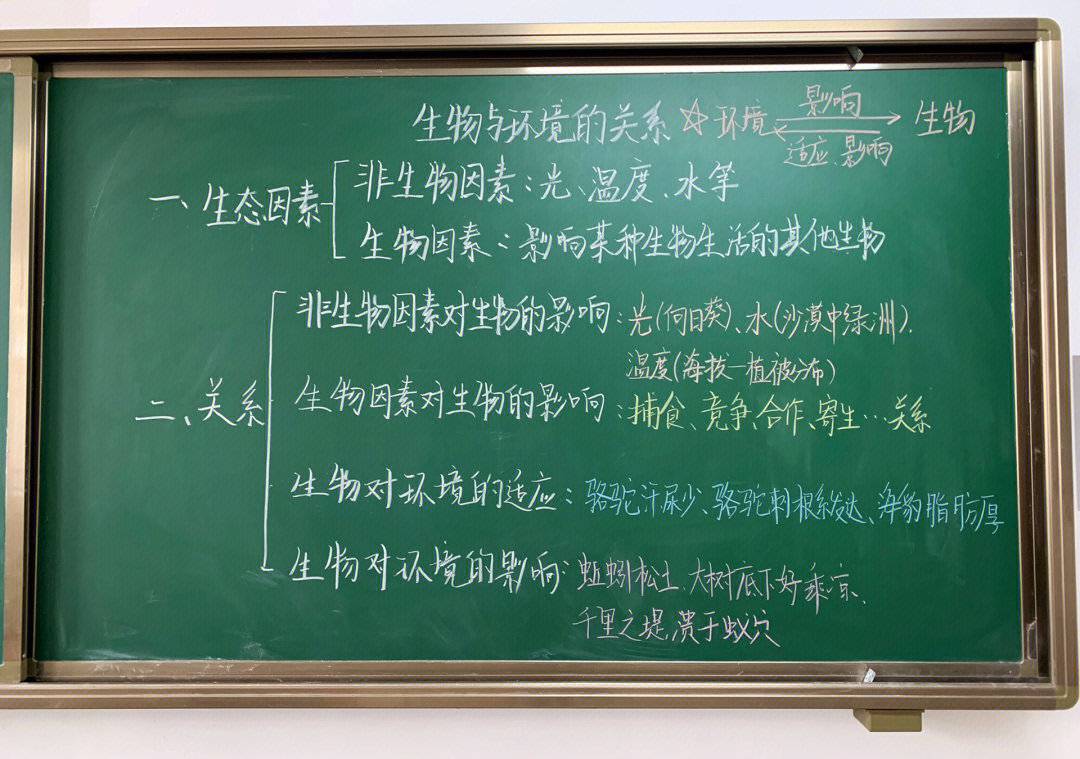 生物与环境的关系 ☆环境 影响 → 生物
← 适应、影响
一、生态因素
非生物因素:光、温度、水等
生物因素:影响某种生物生活的其他生物
二、关系
非生物因素对生物的影响:光(向日葵)、水(沙漠中绿洲).
温度(海拔—植被分布)
生物因素对生物的影响:捕食、竞争、合作、寄生…关系
生物对环境的适应:骆驼汗尿少、骆驼刺根系发达、海豹脂肪厚
生物对环境的影响:蚯蚓松土、大树底下好乘凉、
千里之堤,溃于蚁穴